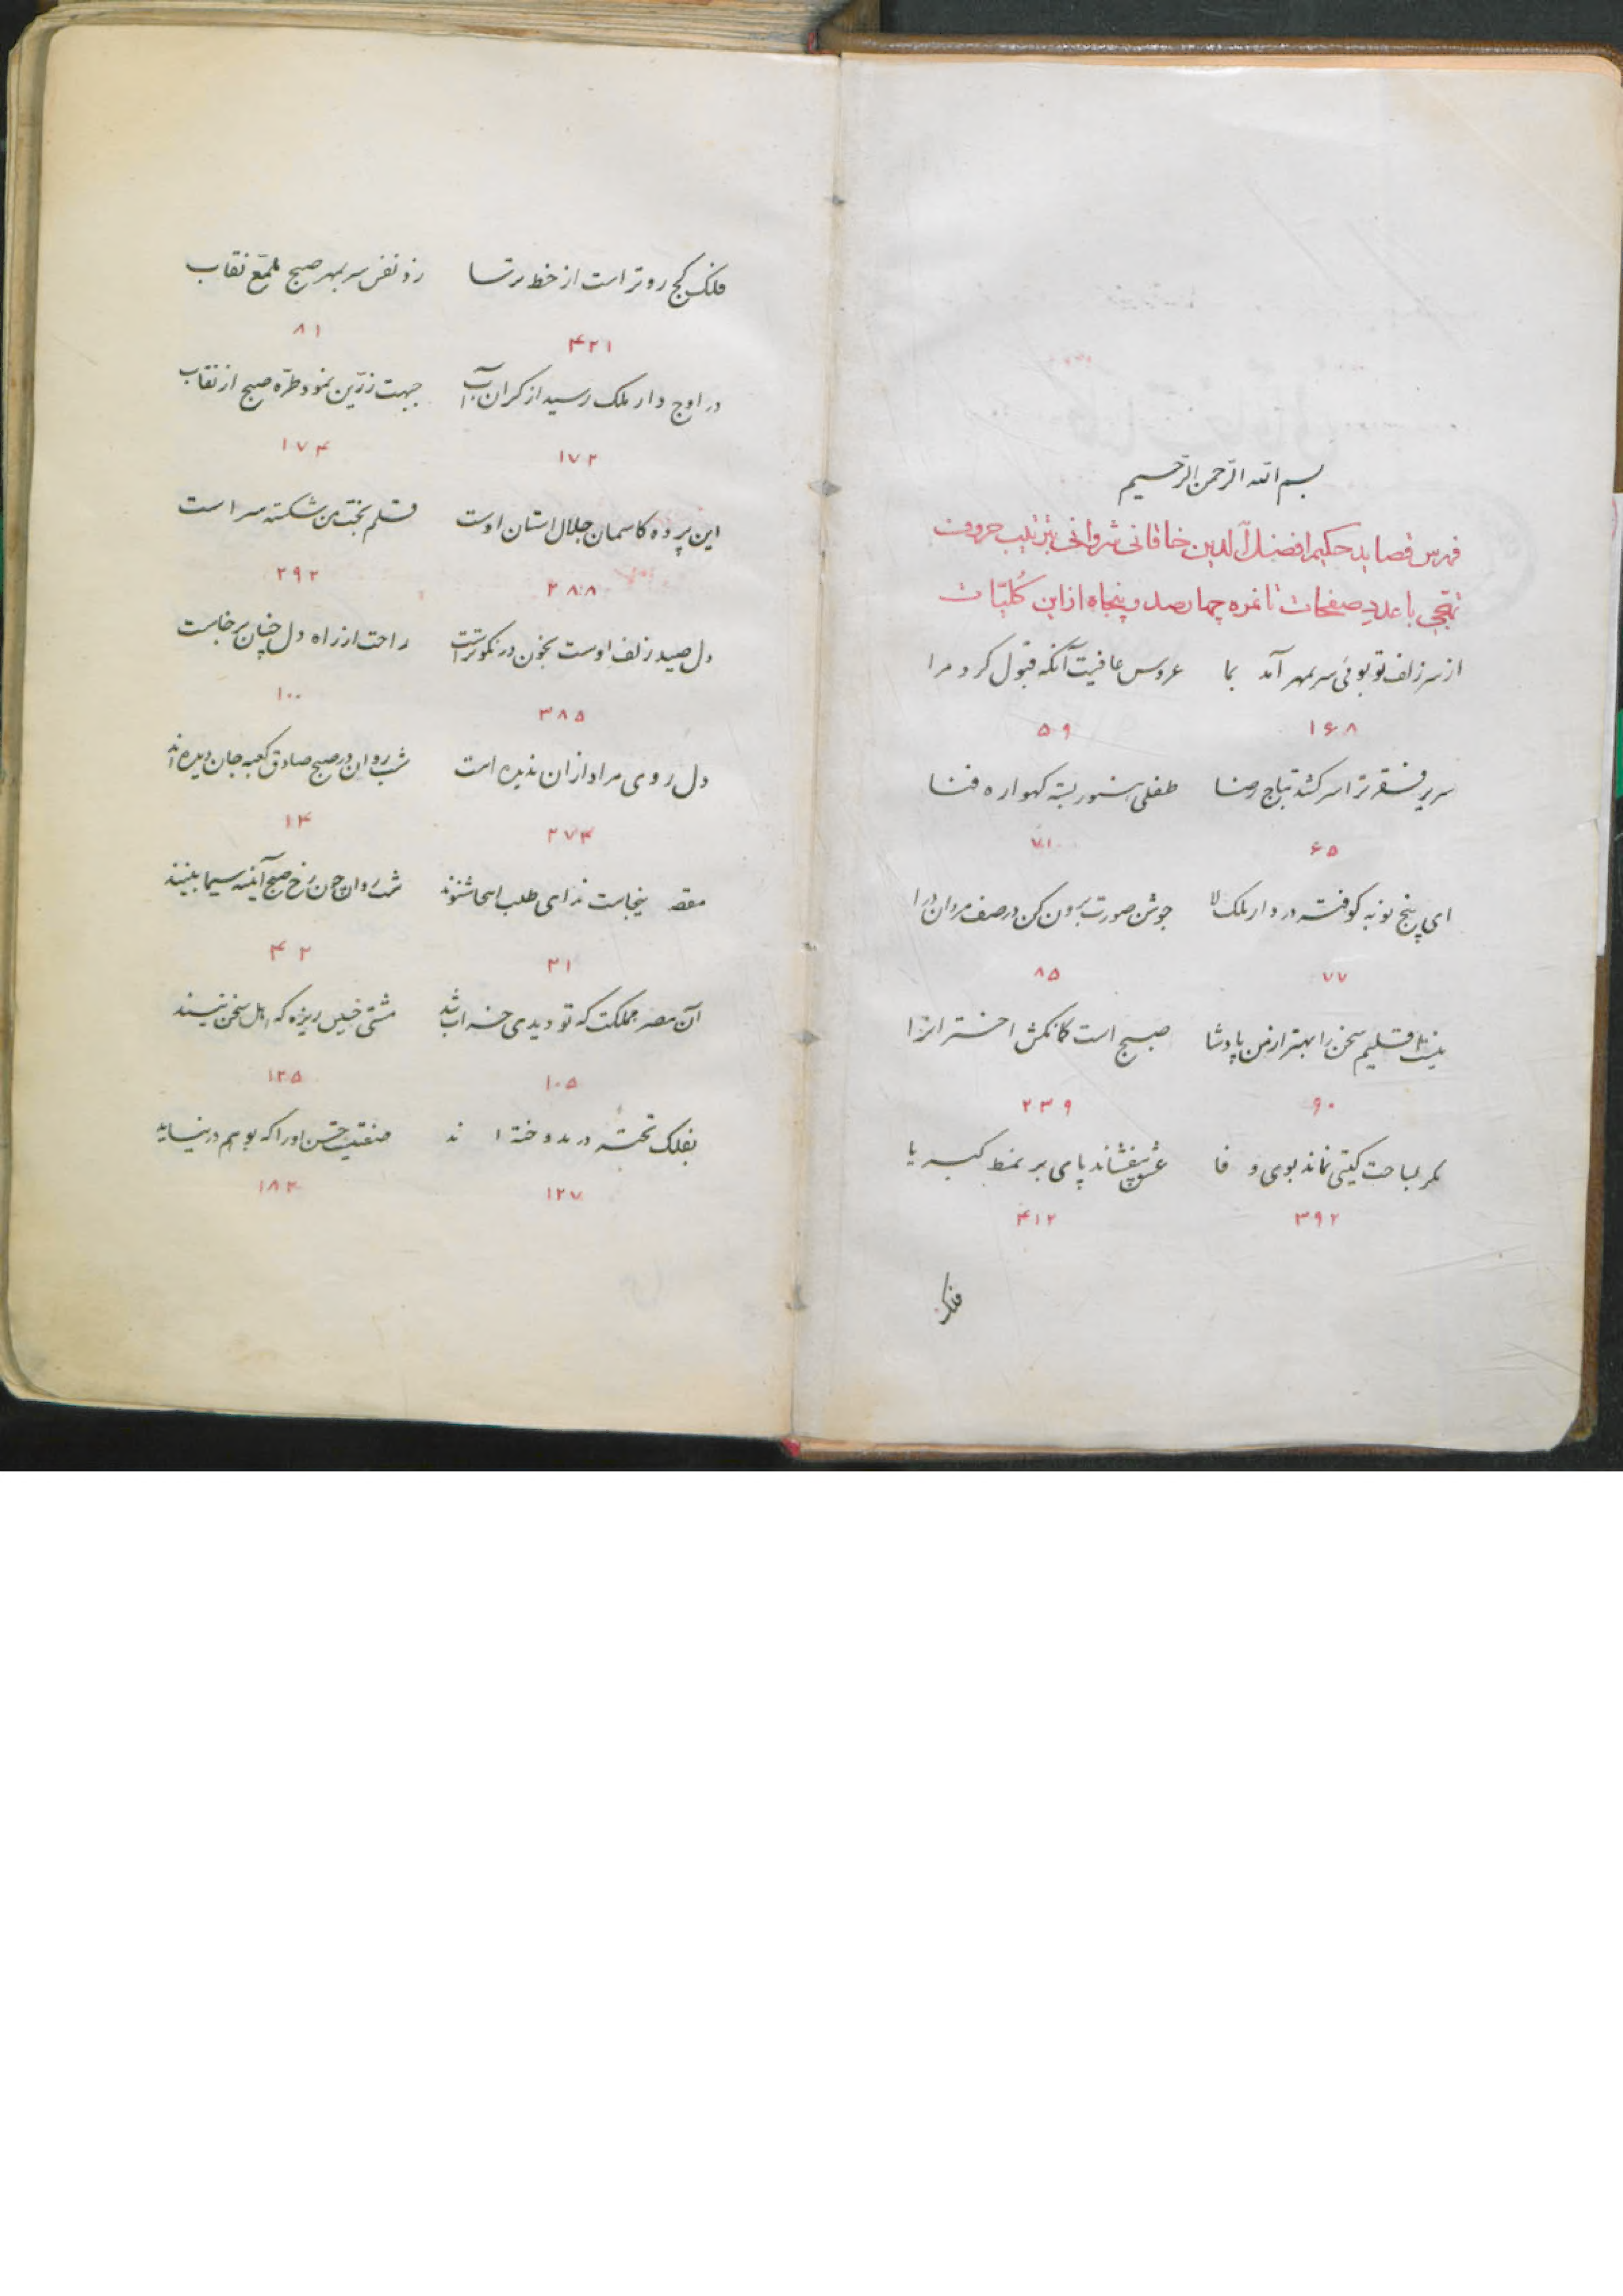 بسم الله الرّحمن الرّحیم
فهرس قصاید حکیم افضل الدین خاقانی شروانی بترتیب حروف
تهجی با عدد صفحات تا نمره چهارصد و پنجاه از این کُلیّات
از سر زلف تو بوئی سر بمهر آمد بما عروس عافیت آنگه قبول کرد مرا
۱۶۸ ۵۹
سریر فقر ترا سر کشد بتاج رضا طفلی هنوز بسته گهواره فنا
۶۵ ۷۱
ای پنج نوبه کوفته در دار ملک لا جوشن صورت برون کن در صف مردان درا
۷۷ ۸۵
نیست اقلیم سخن را بهتر از من پادشا صبح است کمانکش اختران را
۹۰ ۲۳۹
مگر بساحت گیتی نماند بوی وفا عشق بیفشاند پای بر نمط کبریا
۳۹۲ ۴۱۲
فلک
فلک کج روتر است از خط ترسا زد نفس سر بمهر صبح ملمّع نقاب
۴۲۱ ۸۱
در اوج دار ملک رسید از کران آب جبهت زرّین نمود طرّه صبح از نقاب
۱۷۲ ۱۷۴
این پرده کاسمان جلال استان اوست قلم بخت من شکسته سر است
۲۸۸ ۲۹۲
دل صید زلف اوست بخون در نکوتر است راحت از راه دل چنان برخاست
۳۸۵ ۱۰۰
دل روی مراد از آن ندیده است شب روان در صبح صادق کعبه جان دیده‌اند
۲۷۴ ۱۴
مقصد اینجاست ندای طلب اینجا شنوند شب روان چون رخ صبح آینه سیما بینند
۲۱ ۴۲
آن مصر مملکت که تو دیدی خراب شد مشتی خسیس ریزه که اهل سخن نیند
۱۰۵ ۱۲۵
بفلک تخته در ندوخته اند صفتیست حسن او را که بوهم در نیاید
۱۲۷ ۱۸۴